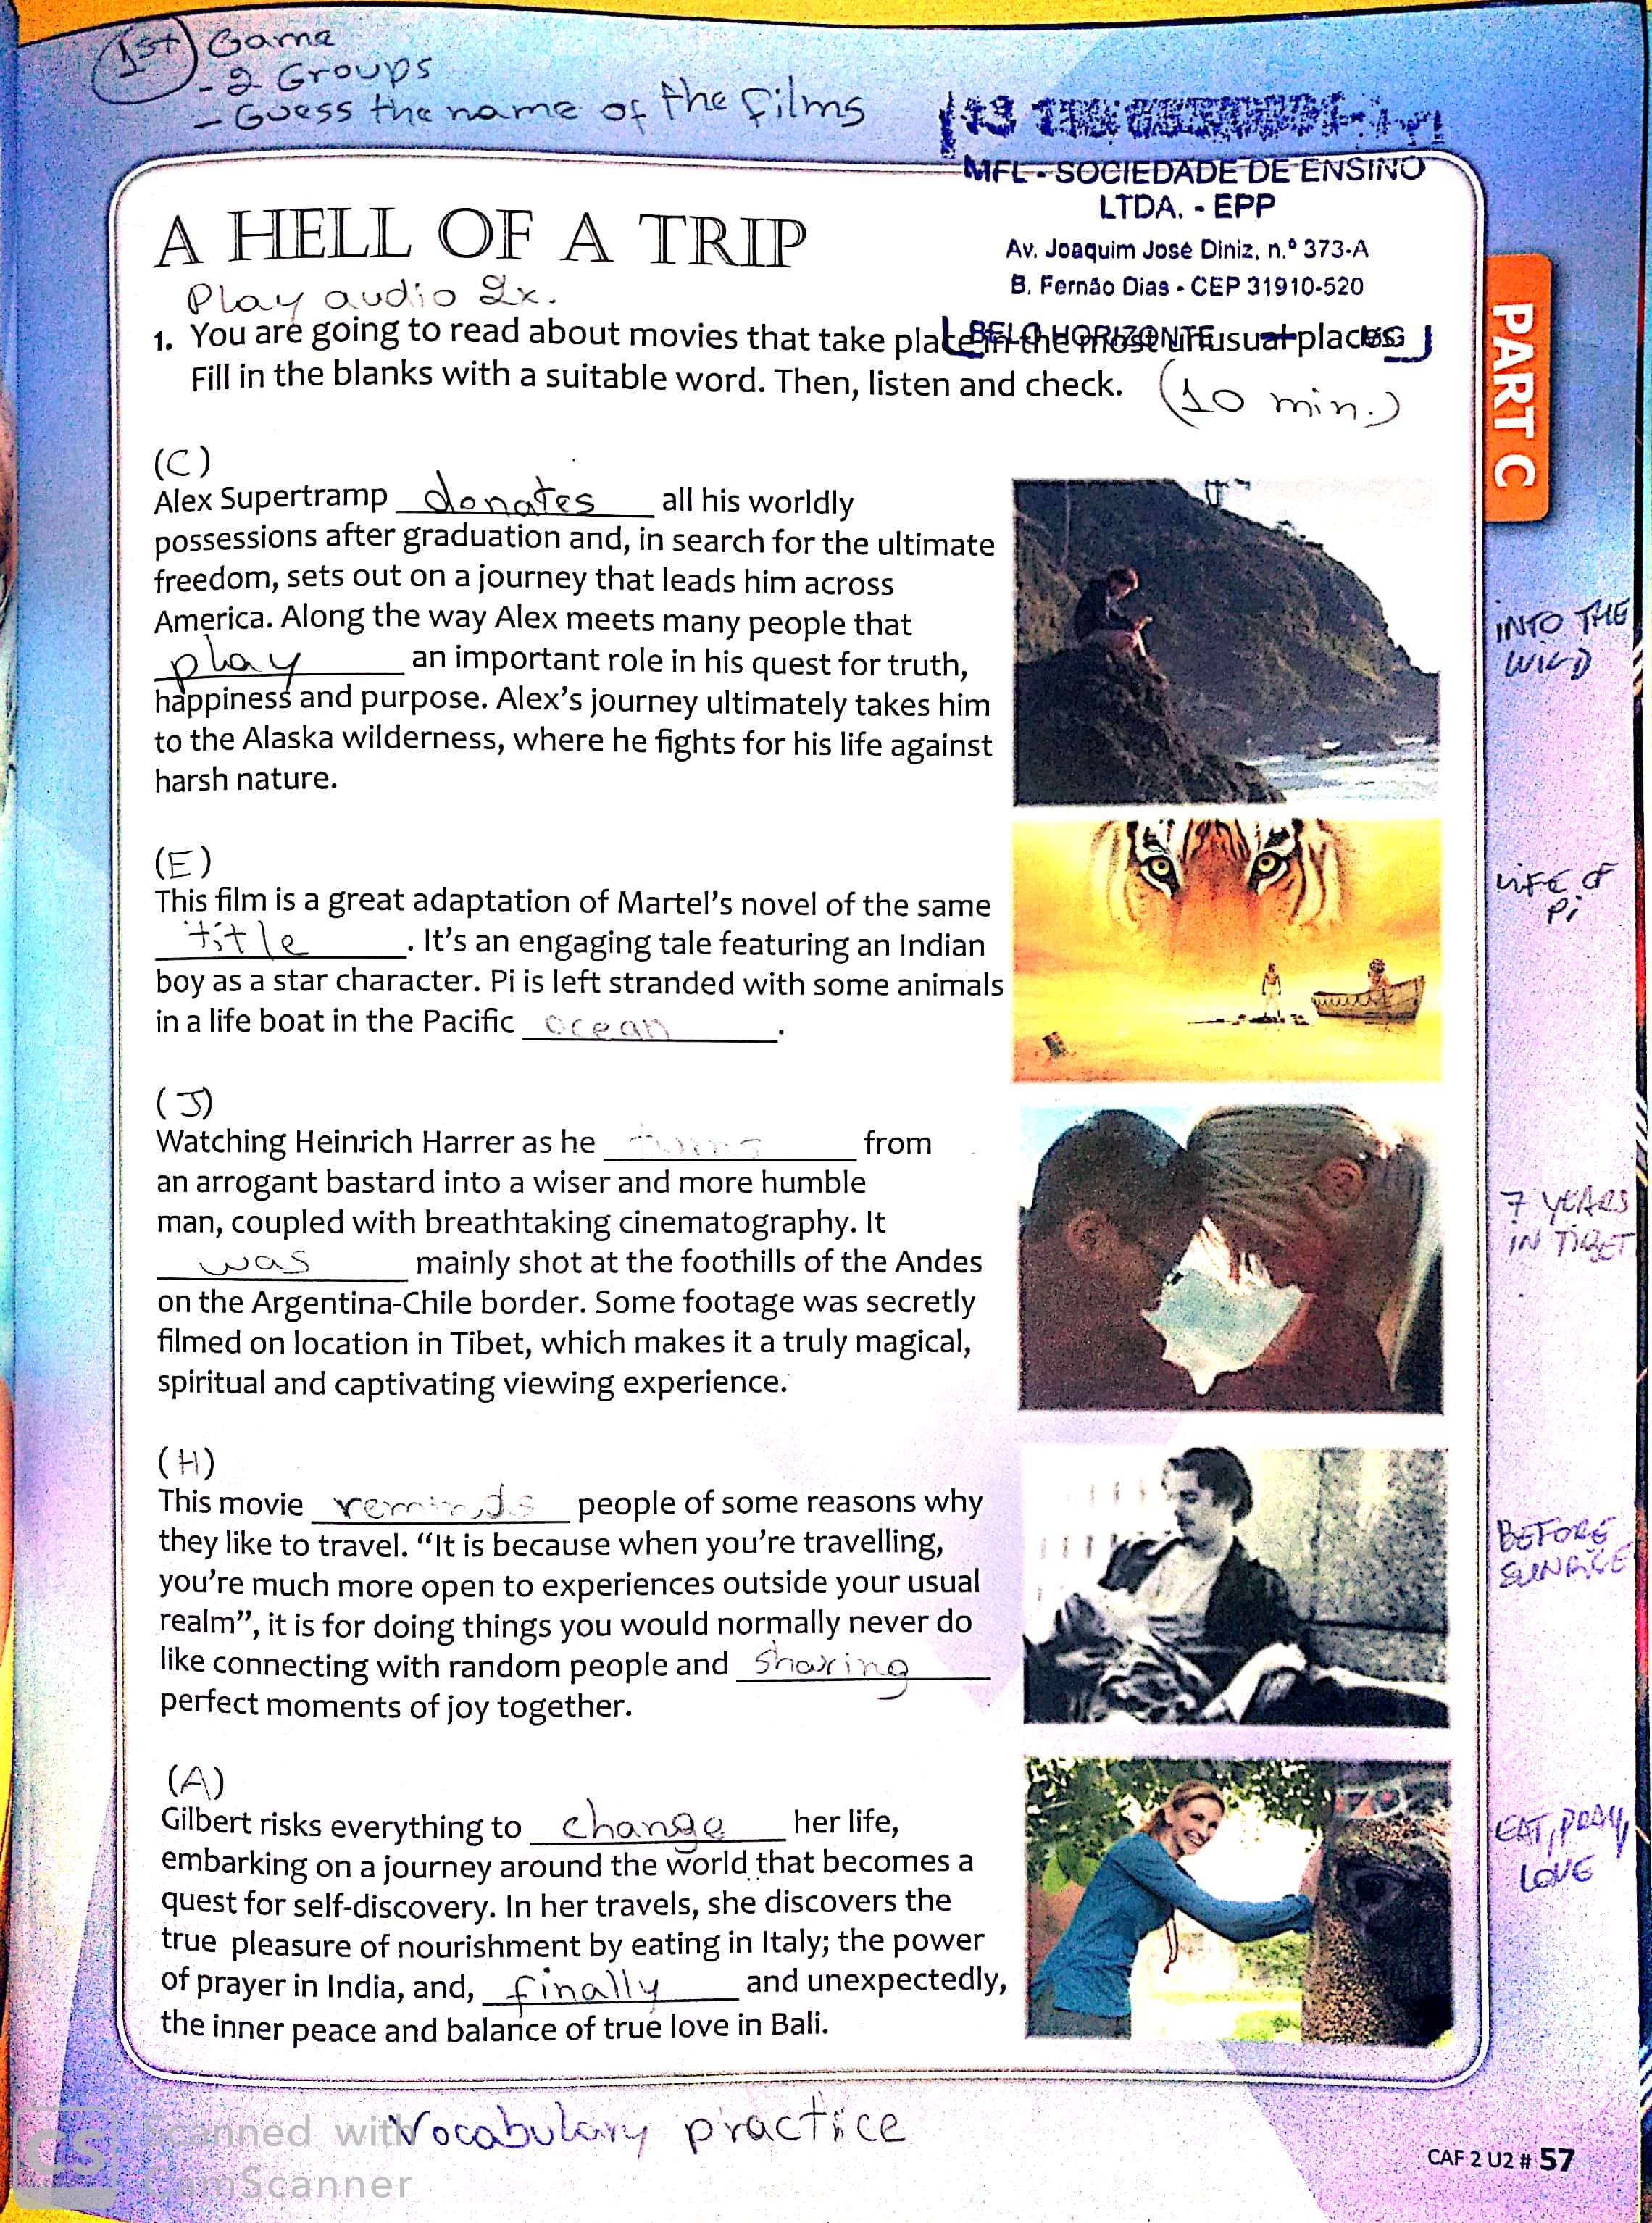 1st Game
- 2 Groups
- Guess the name of the films
MFL - SOCIEDADE DE ENSINO
LTDA. - EPP
Av. Joaquim José Diniz, n.º 373-A
B. Fernão Dias - CEP 31910-520
BELO HORIZONTE MG
A HELL OF A TRIP
Play audio 2x.
1. You are going to read about movies that take place in the most unusual places.
Fill in the blanks with a suitable word. Then, listen and check. (10 min.)
PART C
(C)
Alex Supertramp donates all his worldly
possessions after graduation and, in search for the ultimate
freedom, sets out on a journey that leads him across
America. Along the way Alex meets many people that
play an important role in his quest for truth,
happiness and purpose. Alex's journey ultimately takes him
to the Alaska wilderness, where he fights for his life against
harsh nature.
INTO THE
WILD
(E)
This film is a great adaptation of Martel's novel of the same
title. It's an engaging tale featuring an Indian
boy as a star character. Pi is left stranded with some animals
in a life boat in the Pacific ocean.
LIFE OF
Pi
(J)
Watching Heinrich Harrer as he turns from
an arrogant bastard into a wiser and more humble
man, coupled with breathtaking cinematography. It
was mainly shot at the foothills of the Andes
on the Argentina-Chile border. Some footage was secretly
filmed on location in Tibet, which makes it a truly magical,
spiritual and captivating viewing experience.
7 YEARS
IN TIBET
(H)
This movie reminds people of some reasons why
they like to travel. "It is because when you're travelling,
you're much more open to experiences outside your usual
realm", it is for doing things you would normally never do
like connecting with random people and sharing
perfect moments of joy together.
BEFORE
SUNRISE
(A)
Gilbert risks everything to change her life,
embarking on a journey around the world that becomes a
quest for self-discovery. In her travels, she discovers the
true pleasure of nourishment by eating in Italy; the power
of prayer in India, and, finally and unexpectedly,
the inner peace and balance of true love in Bali.
EAT, PRAY,
LOVE
Vocabulary practice
CS Scanned with
CamScanner
CAF 2 U2 # 57